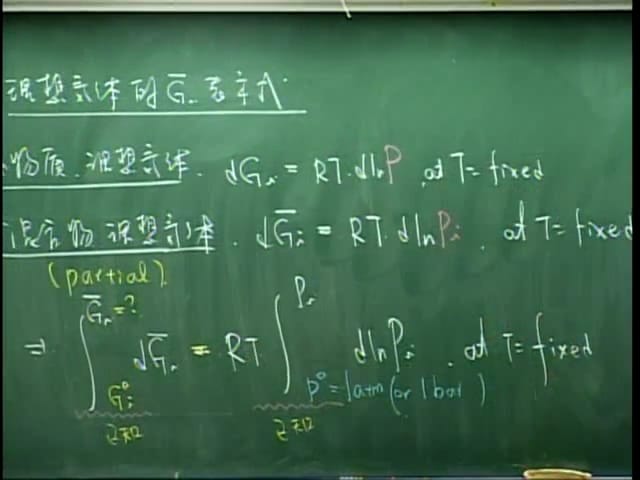 理想氣體的 G̅ᵢ 表示式
物質、理想氣體. dGᵢ = RT·dlnP, at T = fixed
混合物 理想氣體. dG̅ᵢ = RT·dlnPᵢ. at T = fixed
(partial)
⇒ ∫_{Gᵢ°}^{G̅ᵢ=?} dG̅ᵢ = RT ∫_{P°=1atm (or 1 bar)}^{Pᵢ} dlnPᵢ. at T = fixed
已知 已知